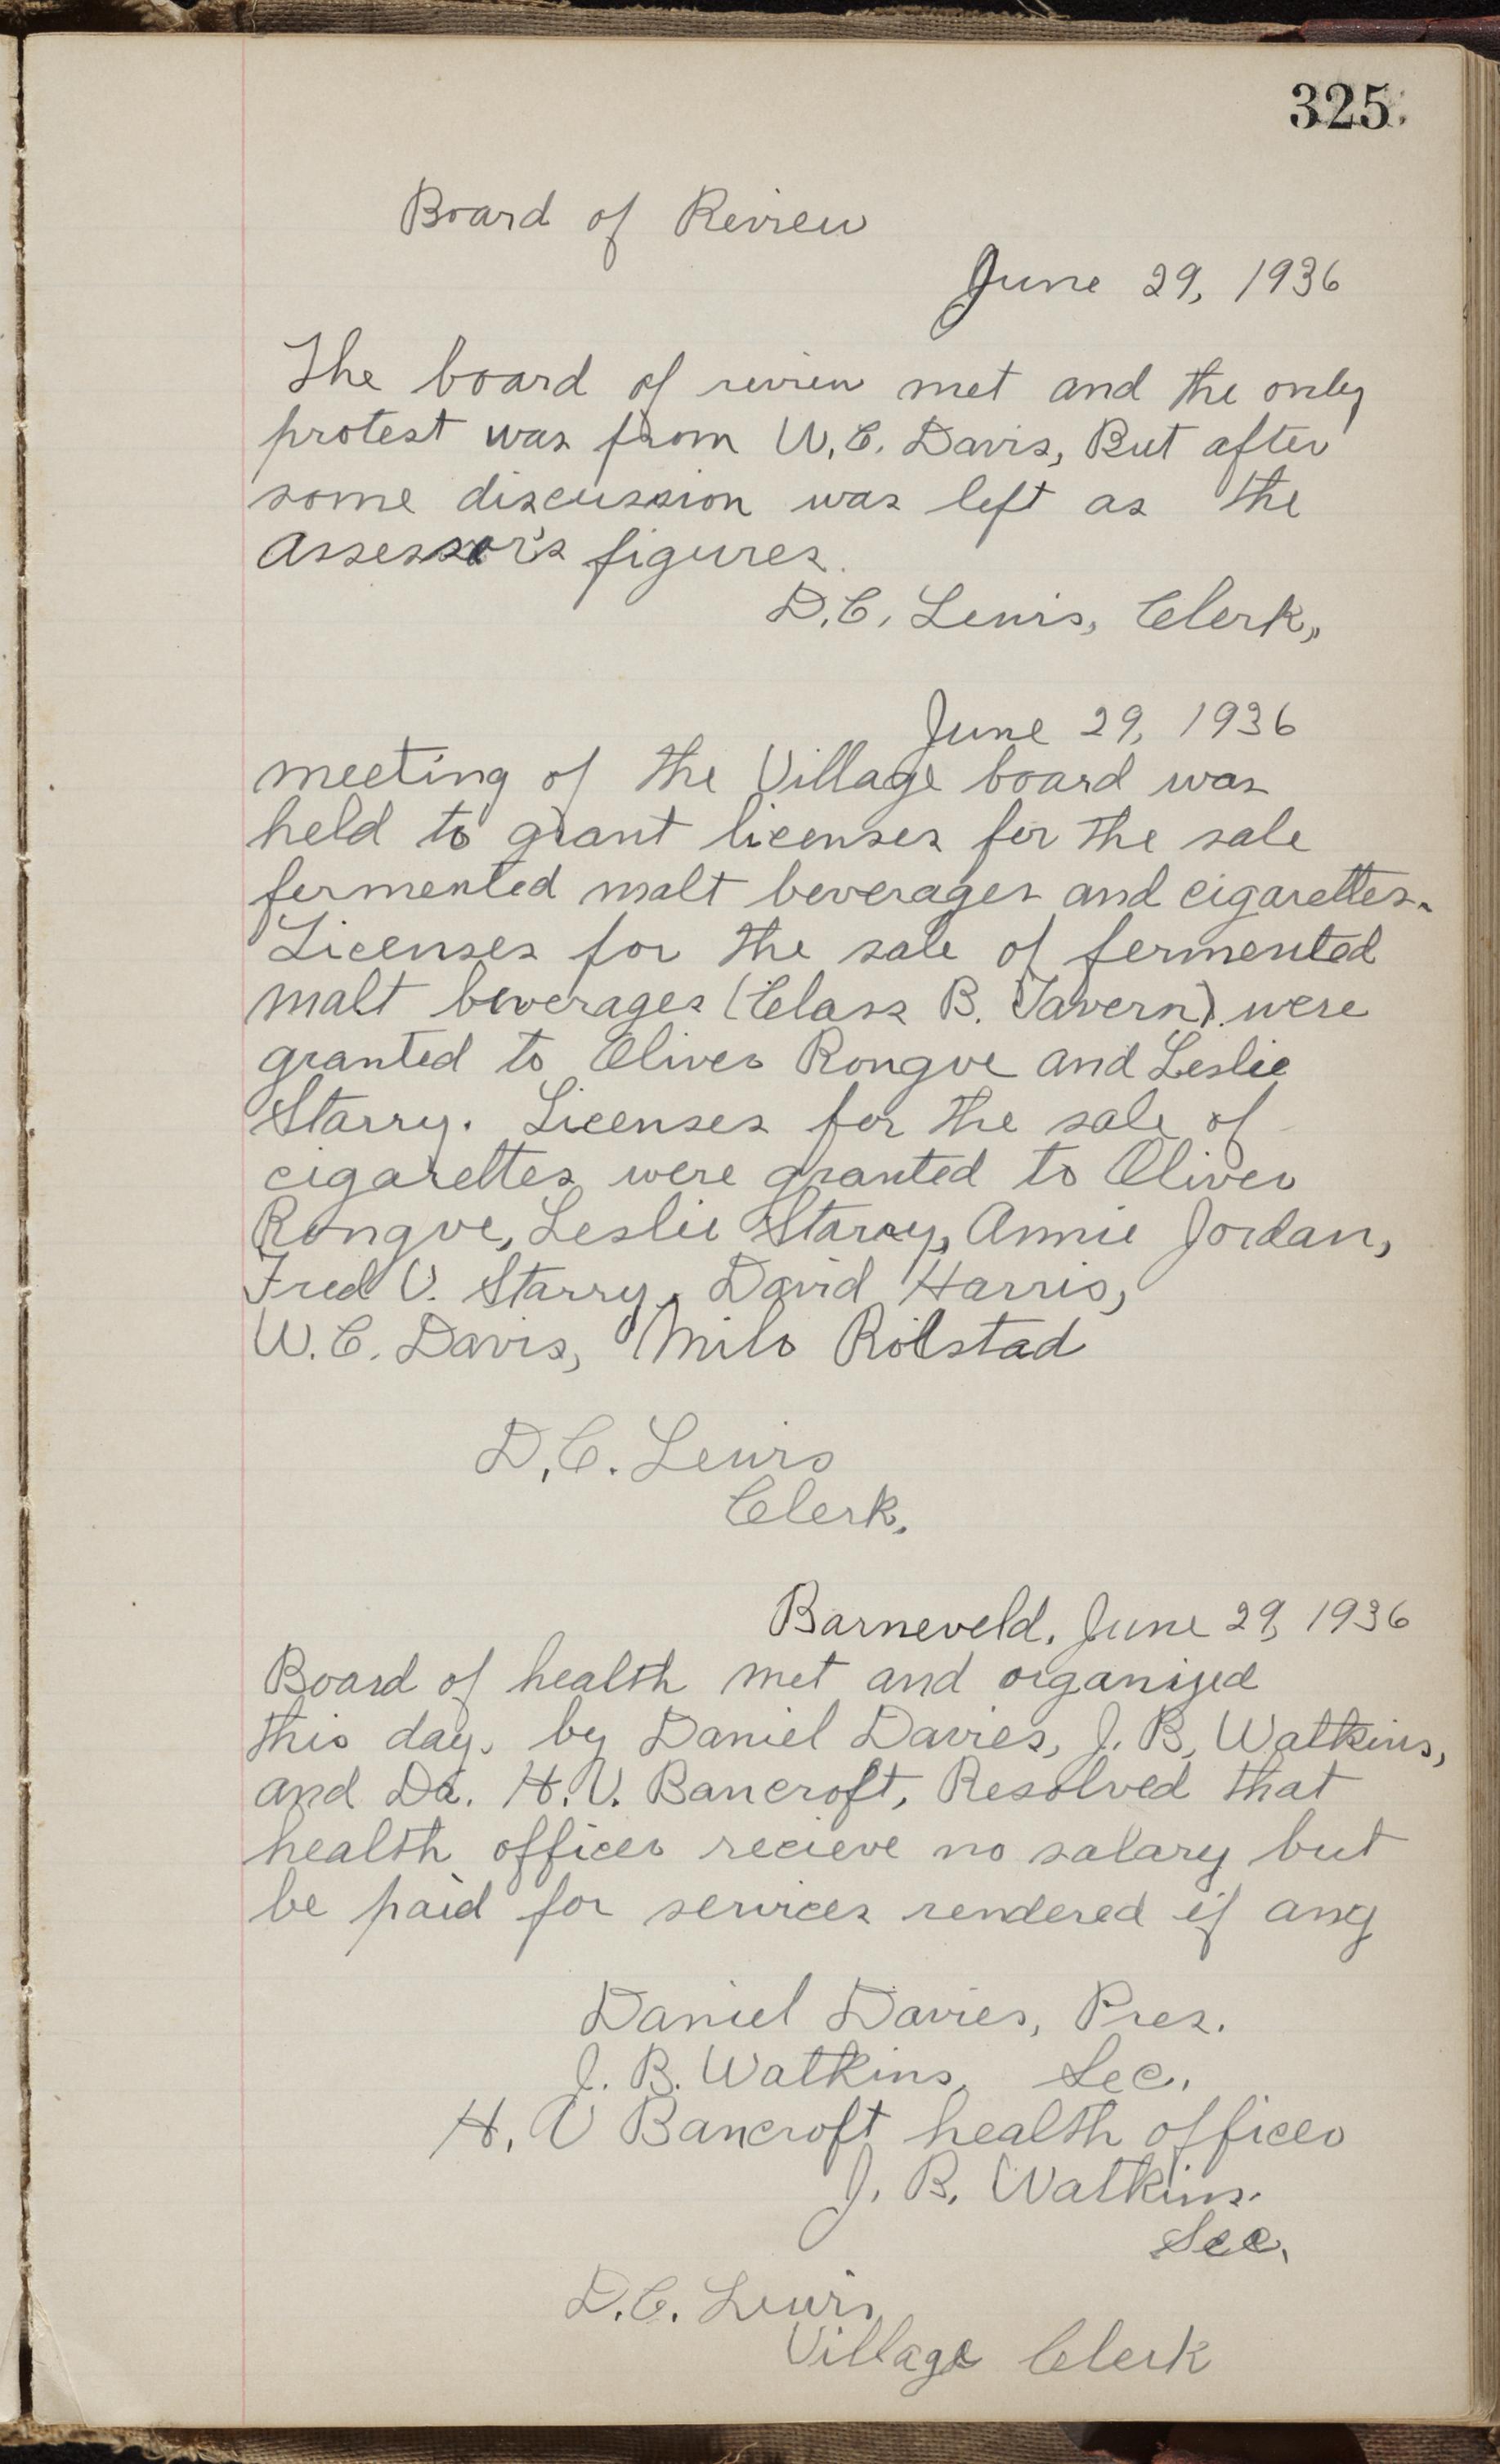 325
Board of Review
June 29, 1936
The board of review met and the only
protest was from W. C. Davis, But after
some discussion was left as the
Assessor's figures.
D. C. Lewis, Clerk,
June 29, 1936
meeting of the Village board was
held to grant licenses for the sale
fermented malt beverages and cigarettes.
Licenses for the sale of fermented
malt beverages (Class B. Tavern) were
granted to Oliver Rongve and Leslie
Starry. Licenses for the sale of
cigarettes were granted to Oliver
Rongve, Leslie Starry, Annie Jordan,
Fred V. Starry, David Harris,
W. C. Davis, Milo Rolstad
D. C. Lewis
Clerk.
Barneveld, June 29, 1936
Board of health met and organized
this day. by Daniel Davies, J. B. Watkins,
and Dr. H. V. Bancroft, Resolved that
health officer recieve no salary but
be paid for services rendered if any
Daniel Davies, Pres.
J. B. Watkins, Sec.
H. V Bancroft health officer
J. B. Watkins.
Sec.
D. C. Lewis
Village Clerk